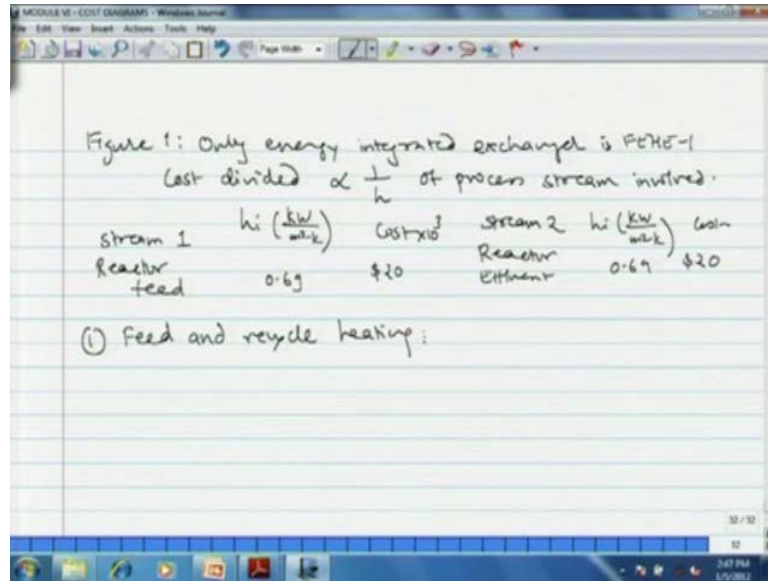 MODULE VI - COST DIAGRAMS - Windows Journal
File Edit View Insert Actions Tools Help
Page Width
Figure 1: Only energy integrated exchanger is FEHE-1
Cost divided ∝ 1/h of process stream involved.
stream 1 hi (kW/m2·K) Cost×10³ stream 2 hi (kW/m2·K) Cost
Reactor feed 0.69 $20 Reactor Effluent 0.69 $20
① Feed and recycle heating:
32 / 32
32
2:47 PM
1/5/2012